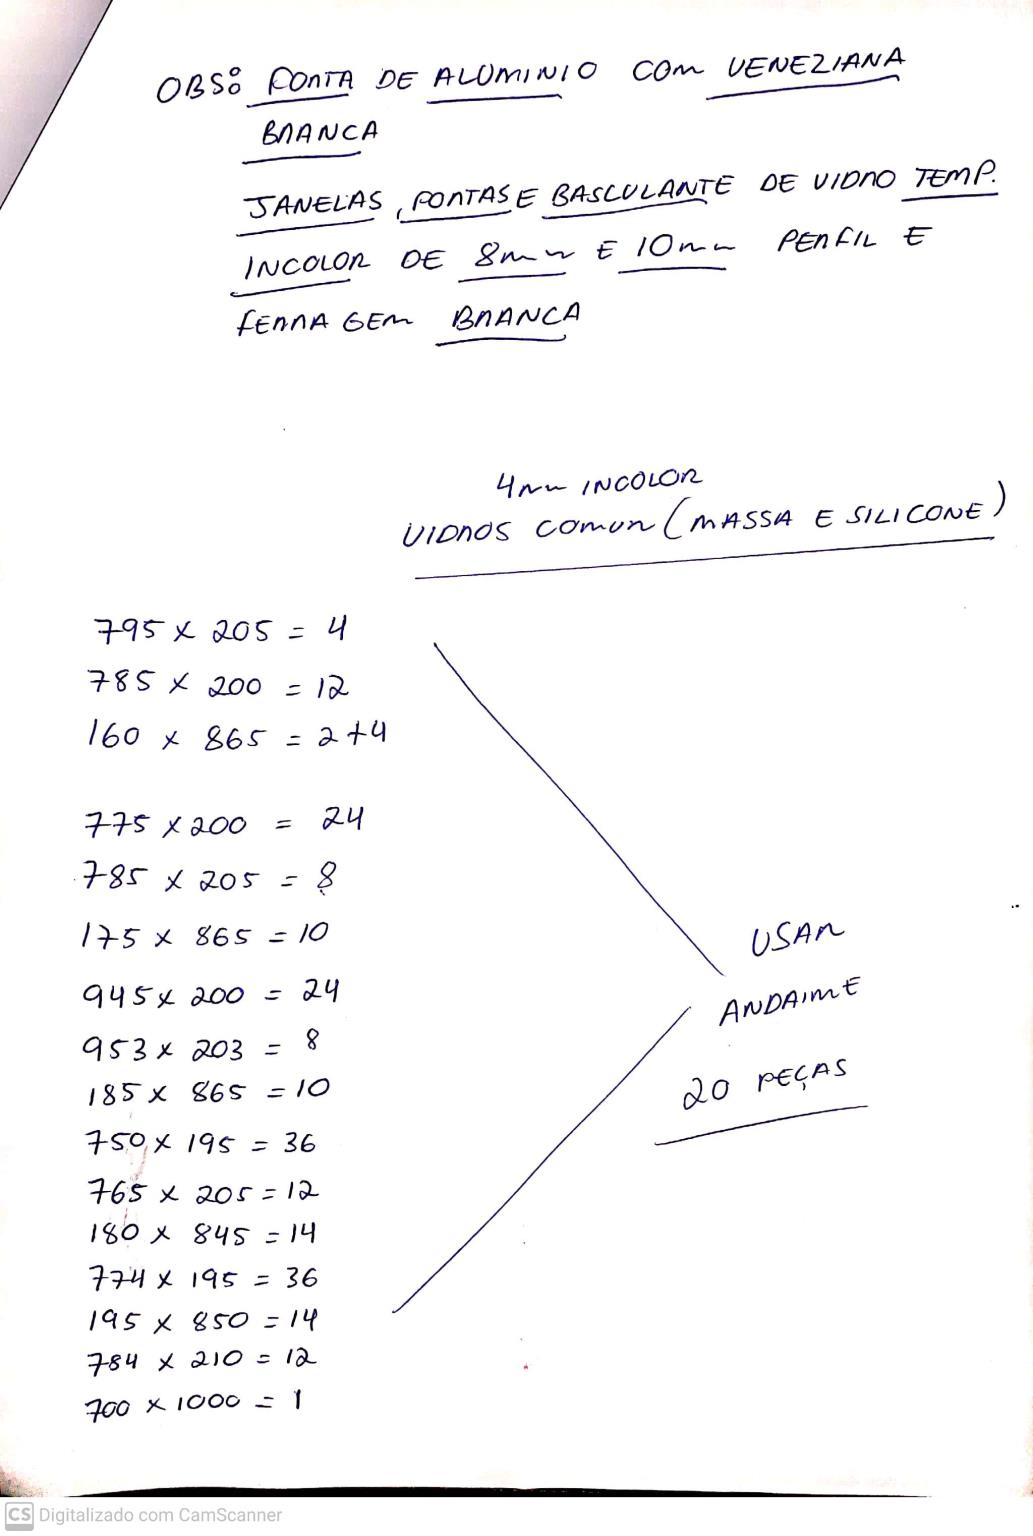 OBS: PORTA DE ALUMINIO COM VENEZIANA
BRANCA
JANELAS, PORTAS E BASCULANTE DE VIDRO TEMP.
INCOLOR DE 8mm E 10mm PERFIL E
FERRAGEM BRANCA
4mm INCOLOR
VIDROS COMUM (MASSA E SILICONE)
795 x 205 = 4
785 x 200 = 12
160 x 865 = 2+4
775 x 200 = 24
785 x 205 = 8
175 x 865 = 10
USAR
945 x 200 = 24
ANDAIME
953 x 203 = 8
185 x 865 = 10
20 PEÇAS
750 x 195 = 36
765 x 205 = 12
180 x 845 = 14
774 x 195 = 36
195 x 850 = 14
784 x 210 = 12
700 x 1000 = 1
CS Digitalizado com CamScanner